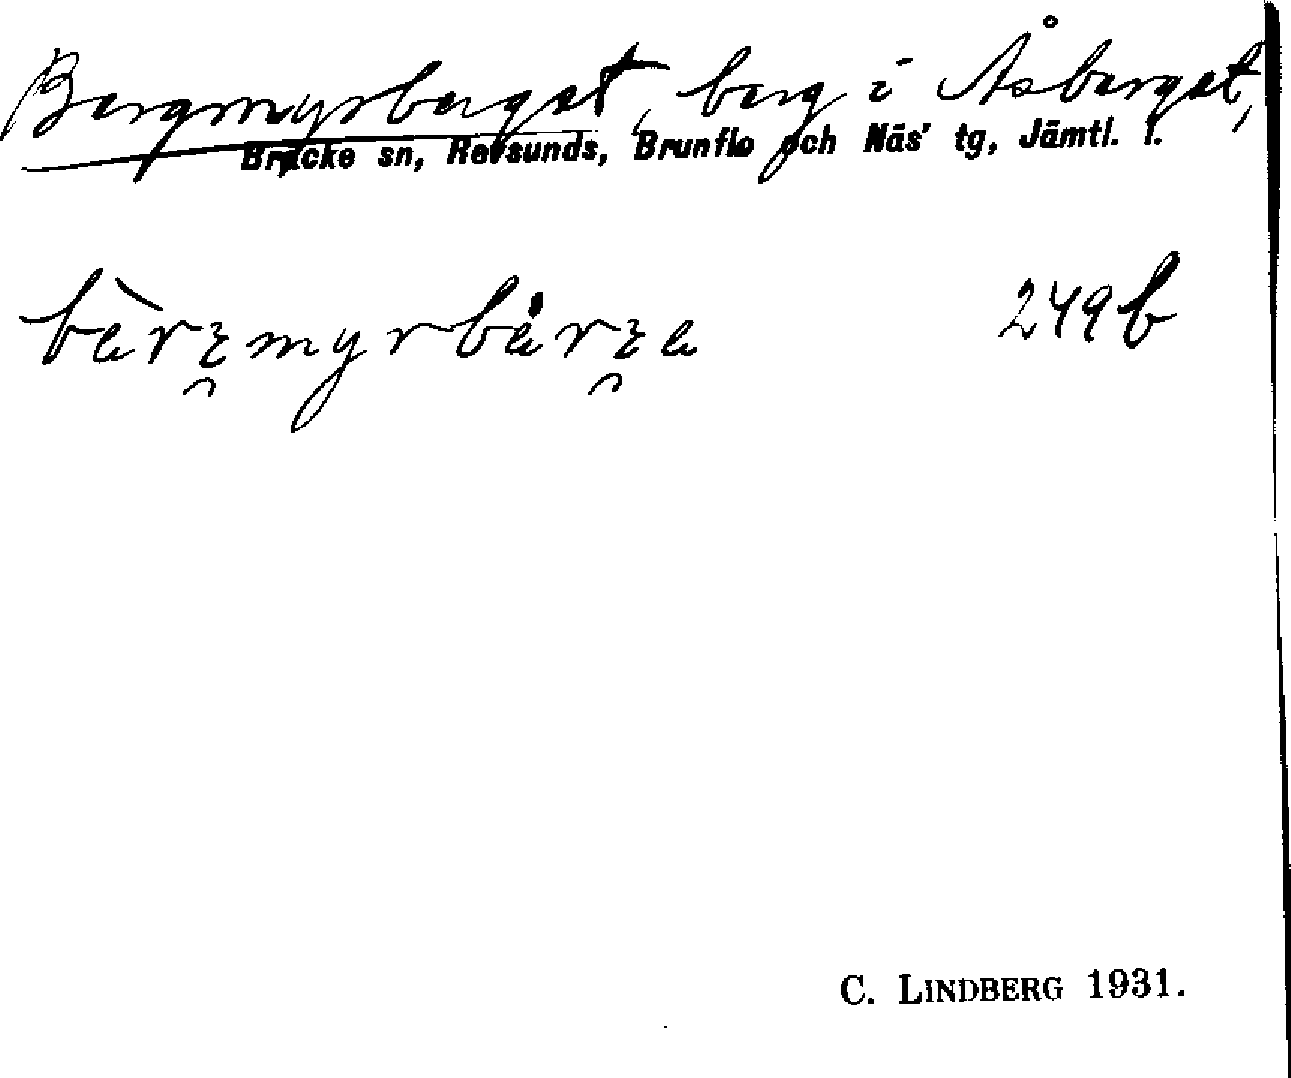 Bergmyrberget, berg i Åsberget,
Bräcke sn, Revsunds, Brunflo och Näs' tg, Jämtl. l.
249b
C. LINDBERG 1931.